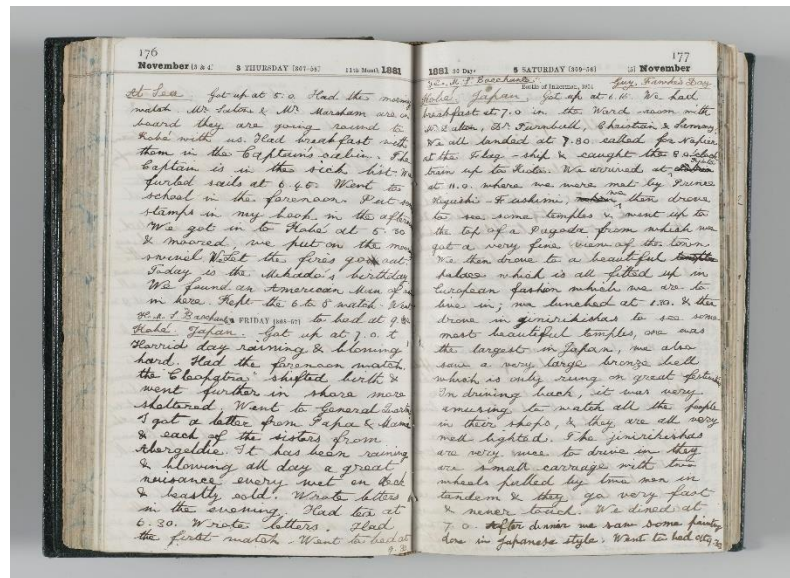 176
November (3 & 4) 3 THURSDAY [307-58] 11th Month 1881
At Sea. Got up at 5.0. Had the morning
watch. Mr Satow & Mr. Marsham are on
board they are going round to
Kobé with us. Had breakfast with
them in the Captain's cabin. The
Captain is in the sick list. We
furled sails at 6.45. Went to
school in the forenoon. Put in
stamps in my book in the aftern
We got in to Kobé at 5.30
& moored, we put on the moor
swivel. let the fires go out.
Today is the Mikado's birthday
We found an American Man of
in here. Kept the 6 to 8 watch. Went
to bed at 9.
H.M.S. Bacchante 4 FRIDAY [308-57]
Kobé. Japan. Got up at 7.0.
Horrid day raining & blowing
hard. Had the forenoon watch.
the "Cleopatra" shifted berth &
went further in shore more
sheltered. Went to General Quarters
I got a letter from Papa & Mama
& each of the sisters from
Abergeldie. It has been raining
& blowing all day a great
nuisance every wet on deck
& beastly cold. Wrote letters
in the evening. Had tea at
6.30. Wrote letters. Had
the first watch. Went to bed at
9.30
177
1881 30 Days 5 SATURDAY [309-56] [5] November
H.M.S. Bacchante. Battle of Inkerman, 1854 Guy Fawkes Day
Kobé. Japan. Got up at 6.15. We had
breakfast at 7.0 in the Ward room with
Mr Dalton, Dr Turnbull, Christian &
We all landed at 7.30 called for Napier
at the Flag-ship & caught the 8 o'clock
train up to Kioto. We arrived at
at 11.0. where we were met by Prince
Higashi-Fushimi, we then drove
to see some temples & went up to
the top of a Pagoda from which we
got a very fine view of the town
We then drove to a beautiful temple
palace which is all fitted up in
European fashion which we are to
live in; we lunched at 1.30. & then
drove in jinirikishas to see some
most beautiful temples, one was
the largest in Japan, we also
saw a very large bronze bell
which is only rung on great festivals
In driving back, it was very
amusing to watch all the people
in their shops, & they are all very
lighted. The jinirikishas
are very nice to drive in they
are small carriage with two
wheels pulled by two men in
tandem & they go very fast
& never touch. We dined at
7.0. After dinner we saw some painting
done in Japanese style. Went to bed at 9.30